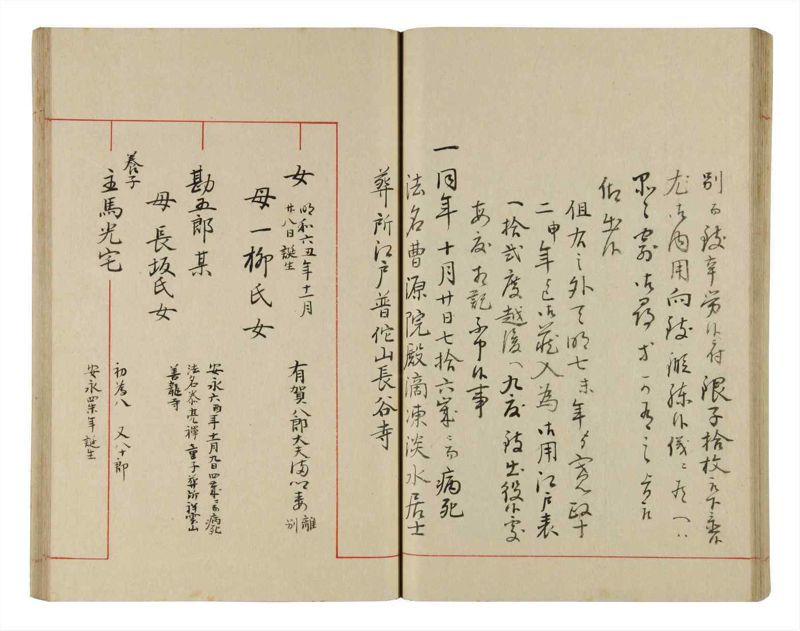 別而致辛労候付銀子拾枚被下置候
尤御内用向致
御尋
仰出候
但右之外天明七未年ゟ寛政十
二申年迄御蔵入為御用江戸表
一拾弐度越後へ九度致出役候処
年度相記不申候事
一同年十月廿日七拾六歳ニ而病死
法名曹源院殿滴凍淡水居士
葬所江戸普陀山長谷寺
女
明和六丑年十一月
廿八日誕生
有賀八郎太夫満以妻
離別
母一柳氏女
勘五郎某
安永六酉年十一月九日四歳ニ而病死
法名泰亮禅童子葬所祥雲山
善龍寺
母長坂氏女
養子
主馬光宅
初為八 又八十郎
安永四未年誕生